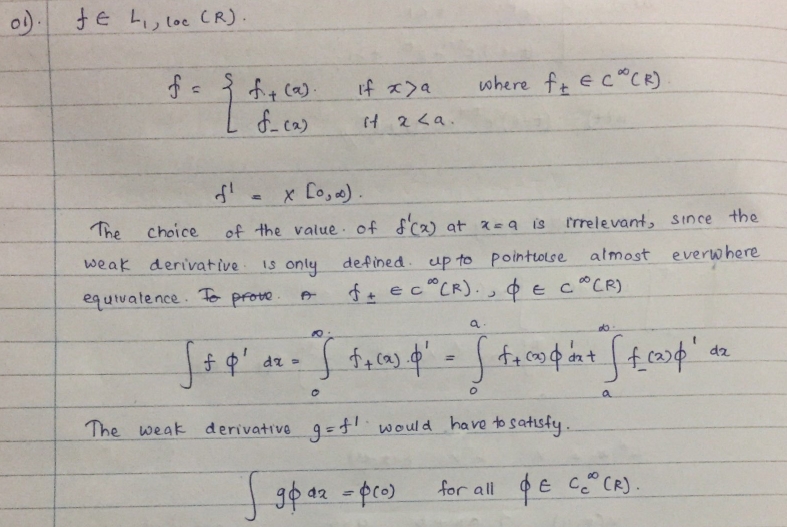 01). f ∈ L₁, loc (R).
f = { f₊(x). if x>a where f± ∈ C^∞(R)
f₋(x) if x<a.
f' = χ [0,∞).
The choice of the value of f'(x) at x=a is irrelevant, since the
weak derivative is only defined up to pointwise almost everwhere
equivalence. To prove. f± ∈ C^∞(R)., φ ∈ C^∞(R)
∫ f φ' dx = ∫₀^∞ f₊(x) φ' = ∫₀^a f₊(x) φ' dx + ∫ₐ^∞ f₋(x) φ' dx
The weak derivative g = f' would have to satisfy.
∫ gφ dx = φ(0) for all φ ∈ C_c^∞(R).